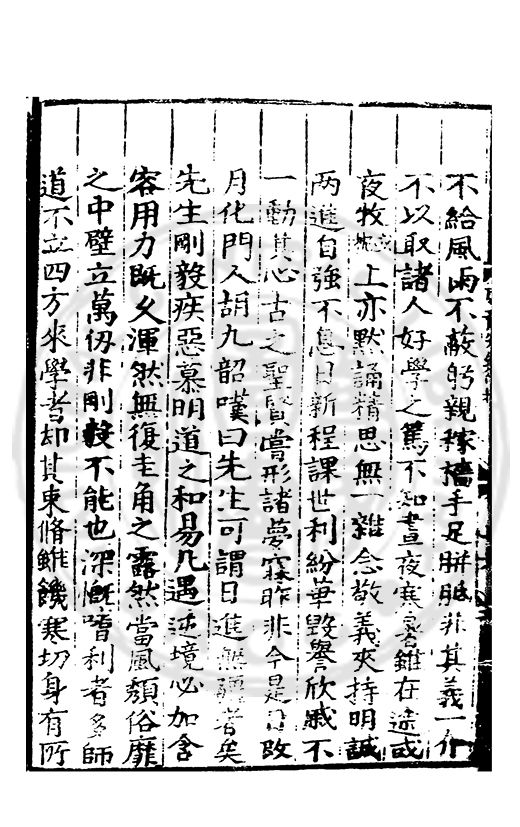 不給風雨不蔽躬親稼穡手足胼胝非其義一介
不以取諸人好學之篤不知晝夜寒暑雖在途或
夜牧上亦默誦精思無一雜念敬義夾持明誠
两進自強不息日新程課世利紛華毀譽欣戚不
一動其心古之聖賢嘗形諸夢寐昨非今是日改
月化門人胡九韶嘆曰先生可謂日進無疆者矣
先生剛毅疾惡慕明道之和易凡遇逆境必加含
容用力既久渾然無復圭角之露然當風頽俗靡
之中壁立萬仞非剛毅不能也深慨嗜利者多師
道不立四方來學者却其束脩雖饑寒切身有所